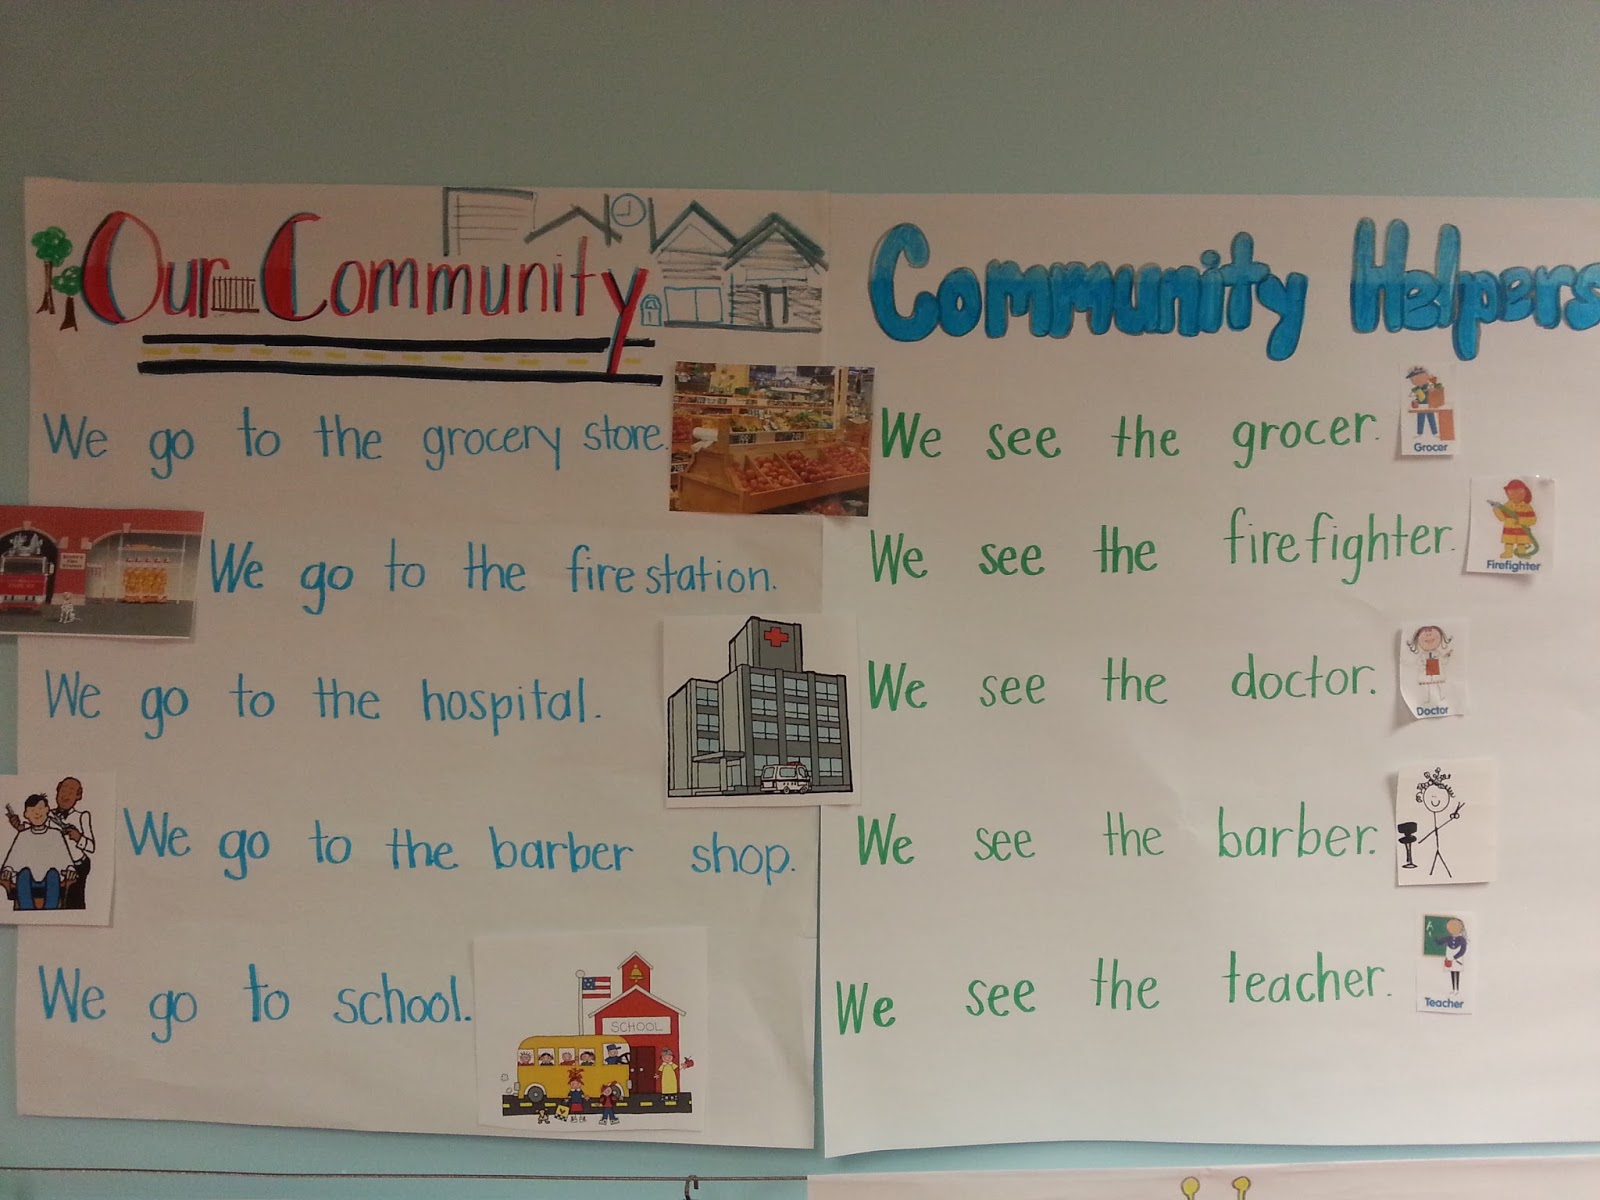 Our Community
We go to the grocery store.
We go to the fire station.
We go to the hospital.
We go to the barber shop.
We go to school.
SCHOOL
Community Helpers
We see the grocer.
Grocer
We see the firefighter.
Firefighter
We see the doctor.
Doctor
We see the barber.
We see the teacher.
Teacher